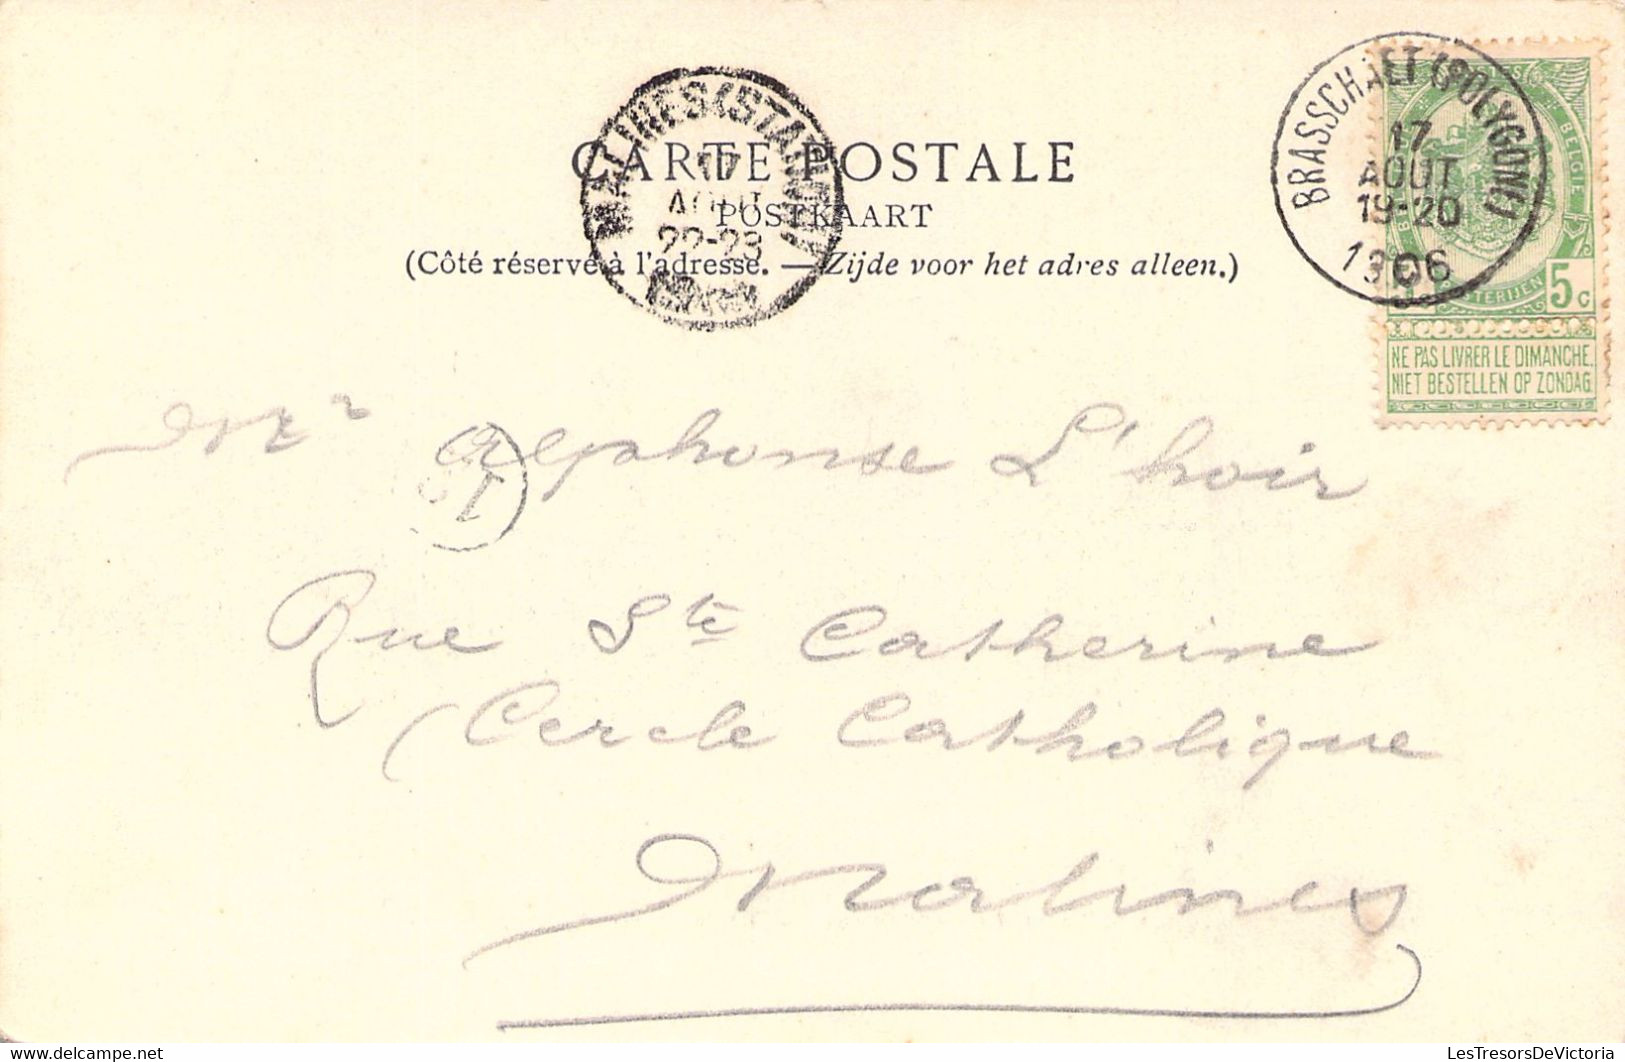 CARTE POSTALE
POSTKAART
(Côté réservé à l'adresse. — Zijde voor het adres alleen.)
MALINES (STATION)
17
AOUT
22-23
BRASSCHAET (POLYGONE)
17
AOUT
19-20
1906
BELGIE
5c
NE PAS LIVRER LE DIMANCHE.
NIET BESTELLEN OP ZONDAG.
Mr Alphonse L'hoir
Rue Ste Catherine
(Cercle Catholique
Malines
LesTresorsDeVictoria